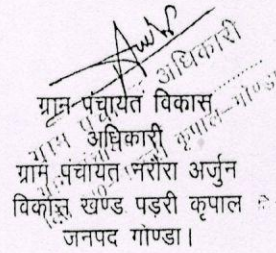 ग्राम पंचायत विकास
अधिकारी
ग्राम पंचायत नरौरा अर्जुन
विकास खण्ड पड़री कृपाल
जनपद गोण्डा।
ग्राम अधिकारी
कृपाल-गोण्डा